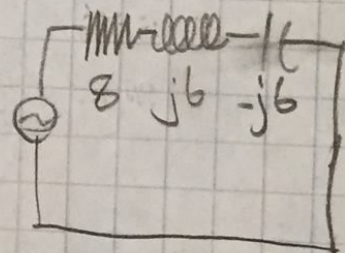 8 j6 -j6